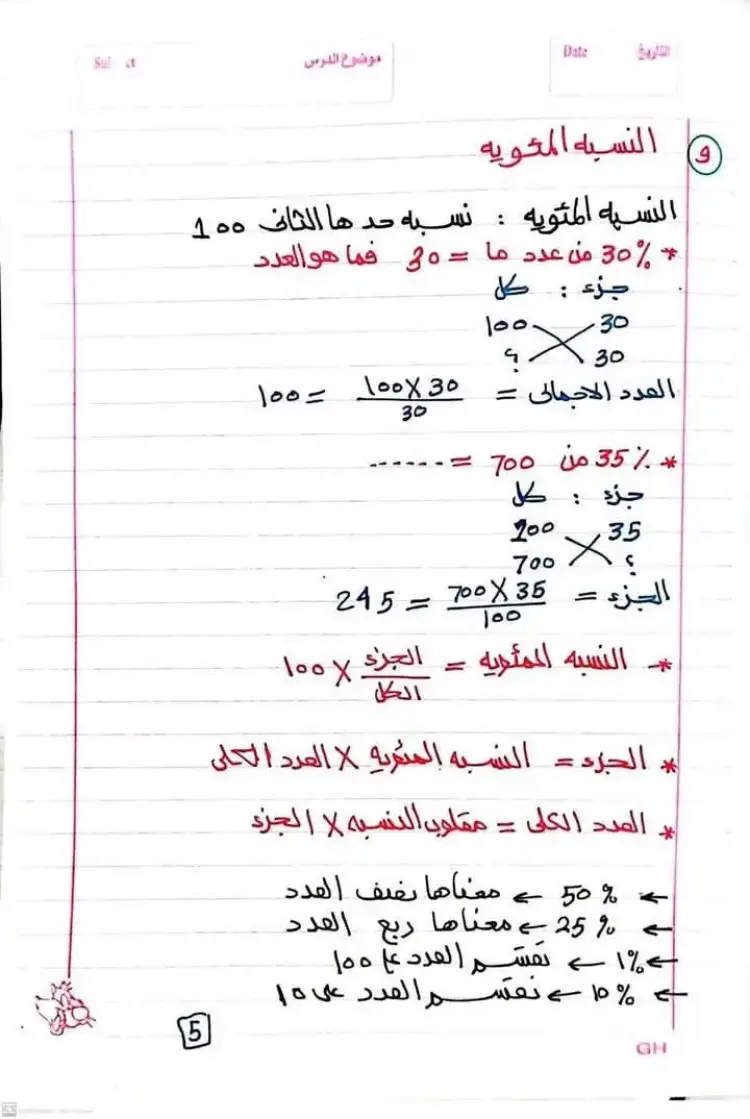 التاريخ Date
موضوع الدرس
٩ النسبه المئويه
النسبه المئويه : نسبه حدها الثانى 100
* 30% من عدد ما = 30 فما هو العدد
جزء : كل
30 100
30 ؟
العدد الاجمالى = 100×30 / 30 = 100
* 35% من 700 = ......
جزء : كل
35 100
؟ 700
الجزء = 700×35 / 100 = 245
* النسبه المئويه = الجزء / الكل × 100
* الجزء = النسبه المئويه × العدد الكلى
* العدد الكلى = مقلوب النسبه × الجزء
← 50% ← معناها نصف العدد
← 25% ← معناها ربع العدد
← 1% ← نقسم العدد على 100
← 10% ← نقسم العدد على 10
5
GH